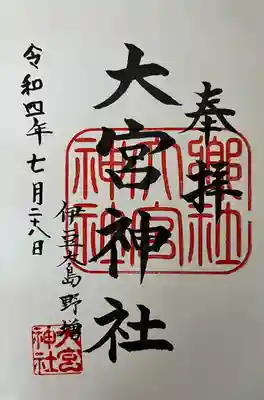 奉拝
大宮神社
伊豆大島野増
令和四年七月二十八日
郷社
大宮
神社
大宮
神社